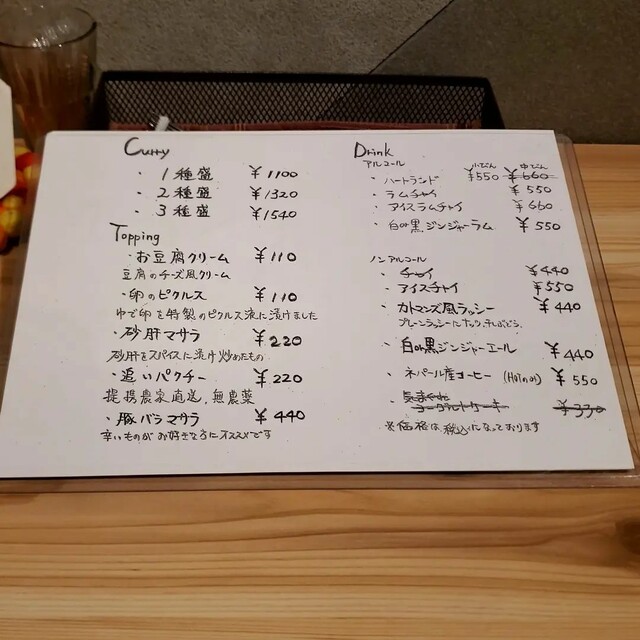 Curry
・1種盛 ¥1100
・2種盛 ¥1320
・3種盛 ¥1540
Topping
・お豆腐クリーム ¥110
豆腐のチーズ風クリーム
・卵のピクルス ¥110
ゆで卵を特製のピクルス液に漬けました
・砂肝マサラ ¥220
砂肝をスパイスに漬け炒めたもの
・追いパクチー ¥220
提携農家直送、無農薬
・豚バラマサラ ¥440
辛いものがお好きな方にオススメです
Drink
アルコール 小びん 中びん
・ハートランド ¥550 ¥660
・ラムチャイ ¥550
・アイスラムチャイ ¥660
・白or黒ジンジャーラム ¥550
ノンアルコール
・チャイ ¥440
・アイスチャイ ¥550
・カトマンズ風ラッシー ¥440
プレーンラッシーにナッツ、干しぶどう
・白or黒ジンジャーエール ¥440
・ネパール産コーヒー (Hot or) ¥550
・気まぐれ
ヨーグルトケーキ ¥330
※価格は税込になっております